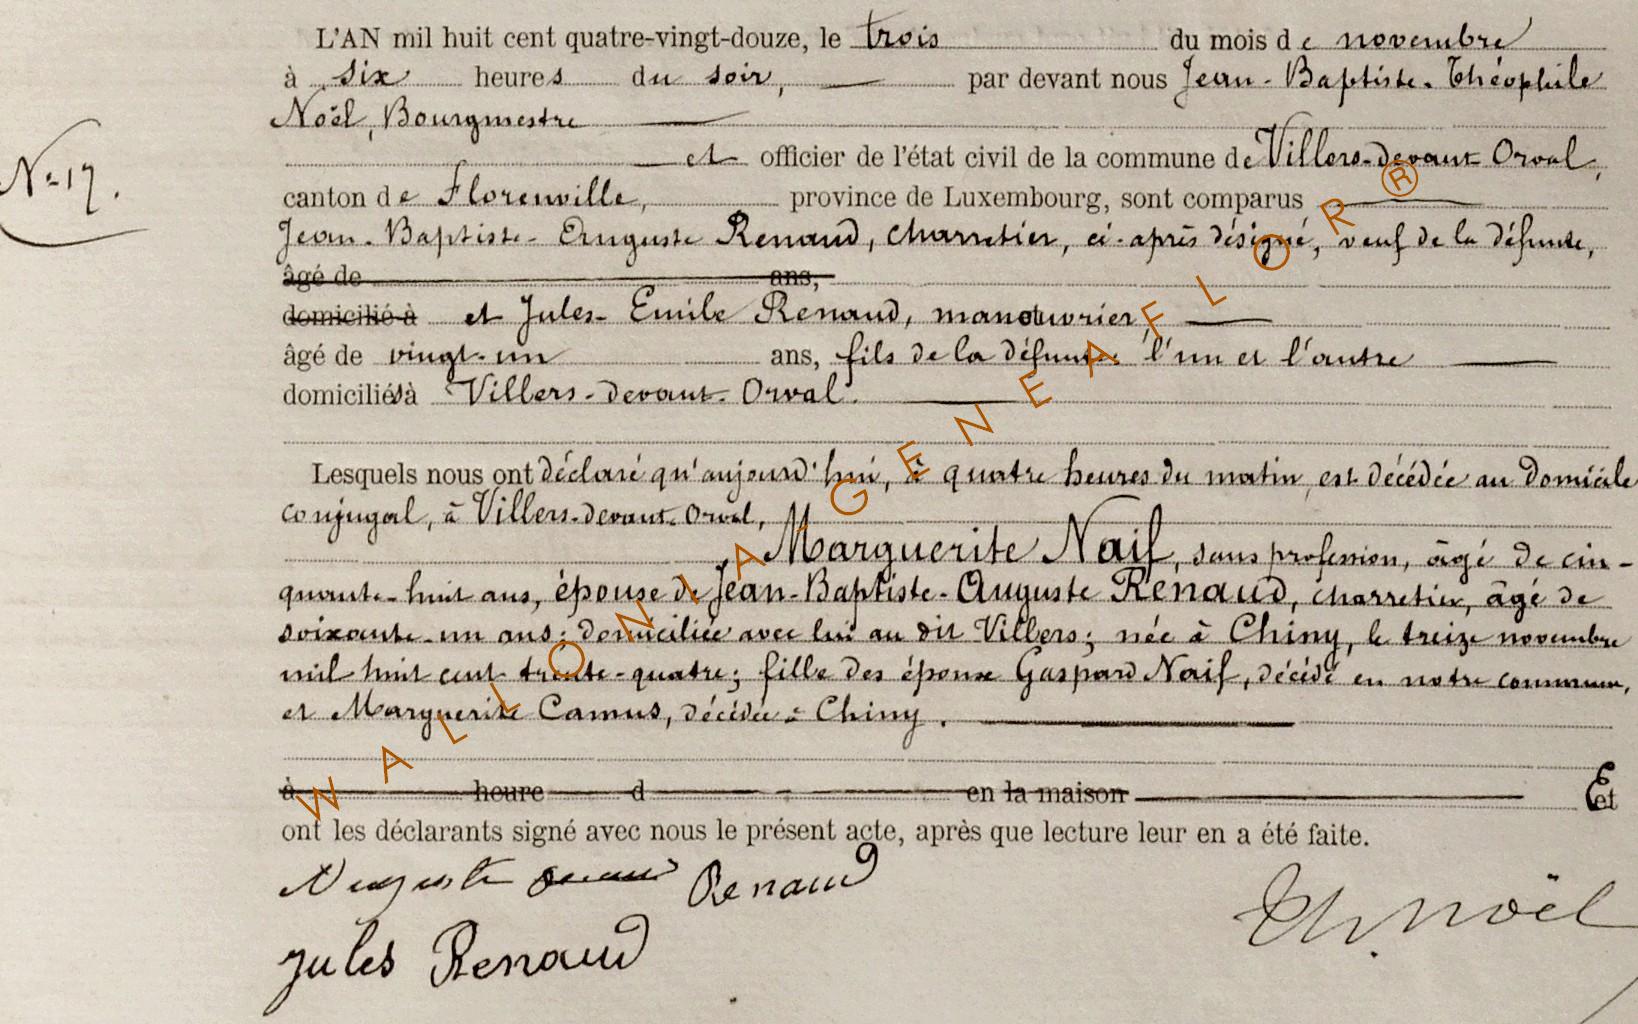 L'AN mil huit cent quatre-vingt-douze, le trois du mois de novembre
à six heures du soir, par devant nous Jean-Baptiste-Théophile
Noël, Bourgmestre
et officier de l'état civil de la commune de Villers-devant-Orval,
N° 17.
canton de Florenville, province de Luxembourg, sont comparus
Jean-Baptiste-Auguste Renaud, charretier, ci-après désigné, veuf de la défunte,
âgé de ans,
domicilié à et Jules-Emile Renaud, manouvrier,
âgé de vingt-un ans, fils de la défunte l'un et l'autre
domiciliés à Villers-devant-Orval.
Lesquels nous ont déclaré qu'aujourd'hui, à quatre heures du matin, est décédée au domicile
conjugal, à Villers-devant-Orval,
Marguerite Naif, sans profession, âgé de cin-
quante-huit ans, épouse de Jean-Baptiste-Auguste Renaud, charretier, âgé de
soixante-un ans; domiciliée avec lui au dit Villers; née à Chiny, le treize novembre
mil huit cent trente-quatre; fille des époux Gaspard Naif, décédé en notre commune,
et Marguerite Camus, décédée à Chiny.
à heure d en la maison Et
ont les déclarants signé avec nous le présent acte, après que lecture leur en a été faite.
Auguste Renaud
Jules Renaud
Th. Noël
WALLONIA-GENEAFLOR®